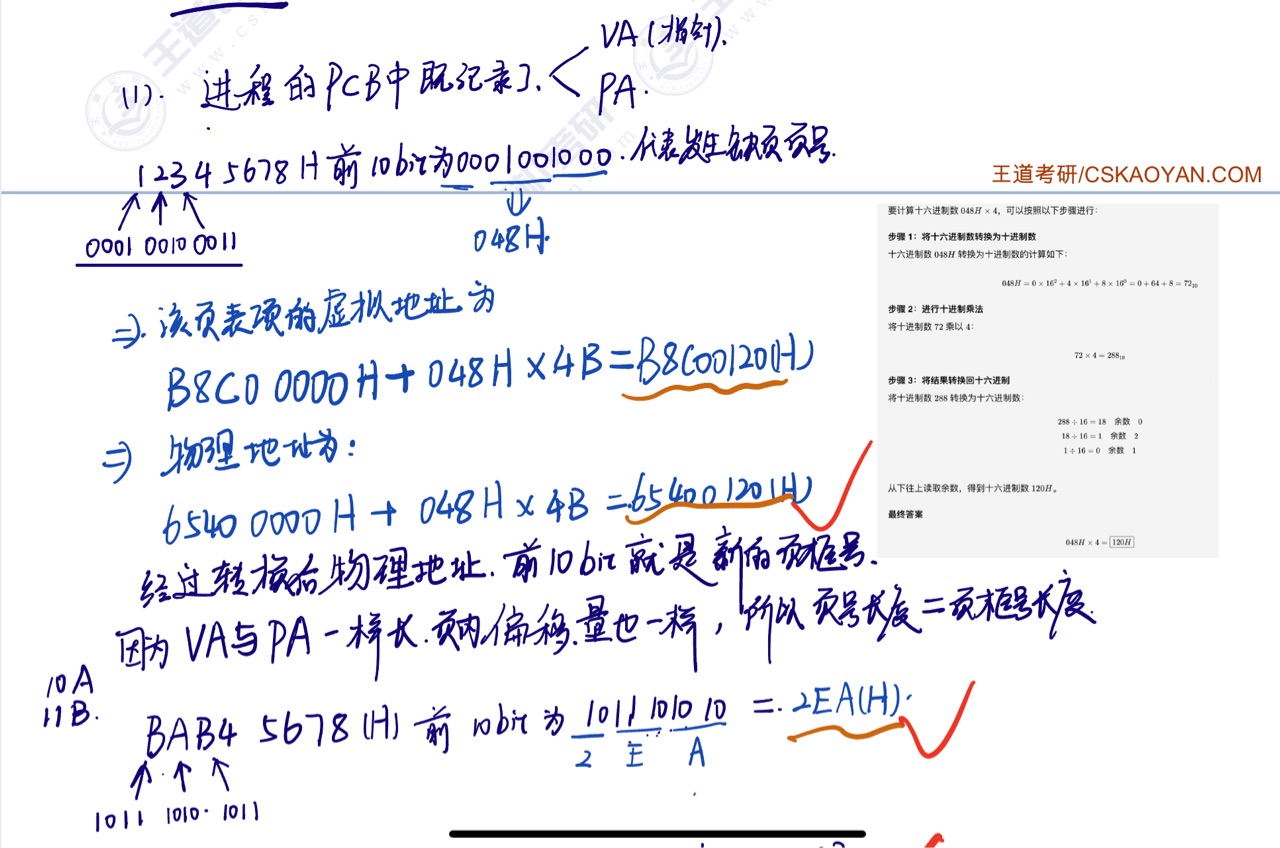 VA(指针).
(1). 进程的PCB中既记录了
PA.
1234 5678H 前10bit为0001001000. 代表发生缺页页号.
王道考研/CSKAOYAN.COM
0001 0010 0011
048H.
要计算十六进制数 048H × 4，可以按照以下步骤进行：
步骤 1：将十六进制数转换为十进制数
十六进制数 048H 转换为十进制数的计算如下：
048H = 0 × 16² + 4 × 16¹ + 8 × 16⁰ = 0 + 64 + 8 = 72₁₀
步骤 2：进行十进制乘法
将十进制数 72 乘以 4：
72 × 4 = 288₁₀
步骤 3：将结果转换回十六进制
将十进制数 288 转换为十六进制数：
288 ÷ 16 = 18 余数 0
18 ÷ 16 = 1 余数 2
1 ÷ 16 = 0 余数 1
从下往上读取余数，得到十六进制数 120H。
最终答案
048H × 4 = 120H
⇒. 该页表项的虚拟地址为
B8C0 0000H + 048H × 4B = B8C00120(H)
⇒ 物理地址为：
6540 0000H + 048H × 4B = 65400120(H)
经过转换后物理地址. 前10bit就是新的页框号.
因为VA与PA一样长. 页内偏移量也一样，所以页号长度=页框号长度.
10A
11B.
BAB4 5678(H) 前10bit为 1011101010 = 2EA(H).
2 E A
1011 1010 1011